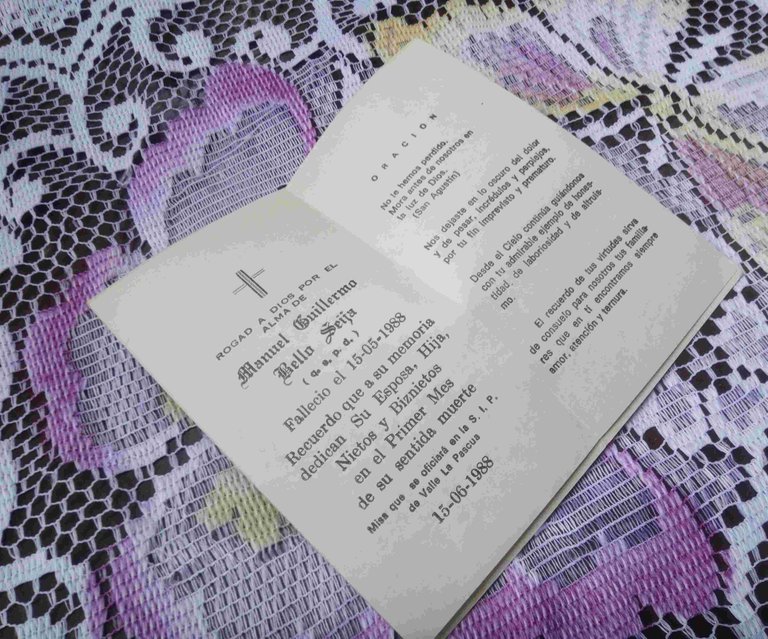 ROGAD A DIOS POR EL
ALMA DE
Manuel Guillermo
Bello Seija
(q. e. p. d.)
Fallecio el 15-05-1988
Recuerdo que a su memoria
dedican Su Esposa, Hija,
Nietos y Biznietos
en el Primer Mes
de su sentida muerte
Misa que se oficiará en la S. I. P.
de Valle La Pascua
15-06-1988
ORACION
No le hemos perdido.
Mora antes de nosotros en
la luz de Dios.
(San Agustín)
Nos dejaste en lo oscuro del dolor
y de pesar, incrédulos y perplejos,
por tu fin imprevisto y prematuro.
Desde el Cielo continúa guiándonos
con tu admirable ejemplo de hones-
tidad, de laboriosidad y de altruis-
mo.
El recuerdo de tus virtudes sirva
de consuelo para nosotros tus familia-
res que en ti encontramos siempre
amor, atención y ternura.